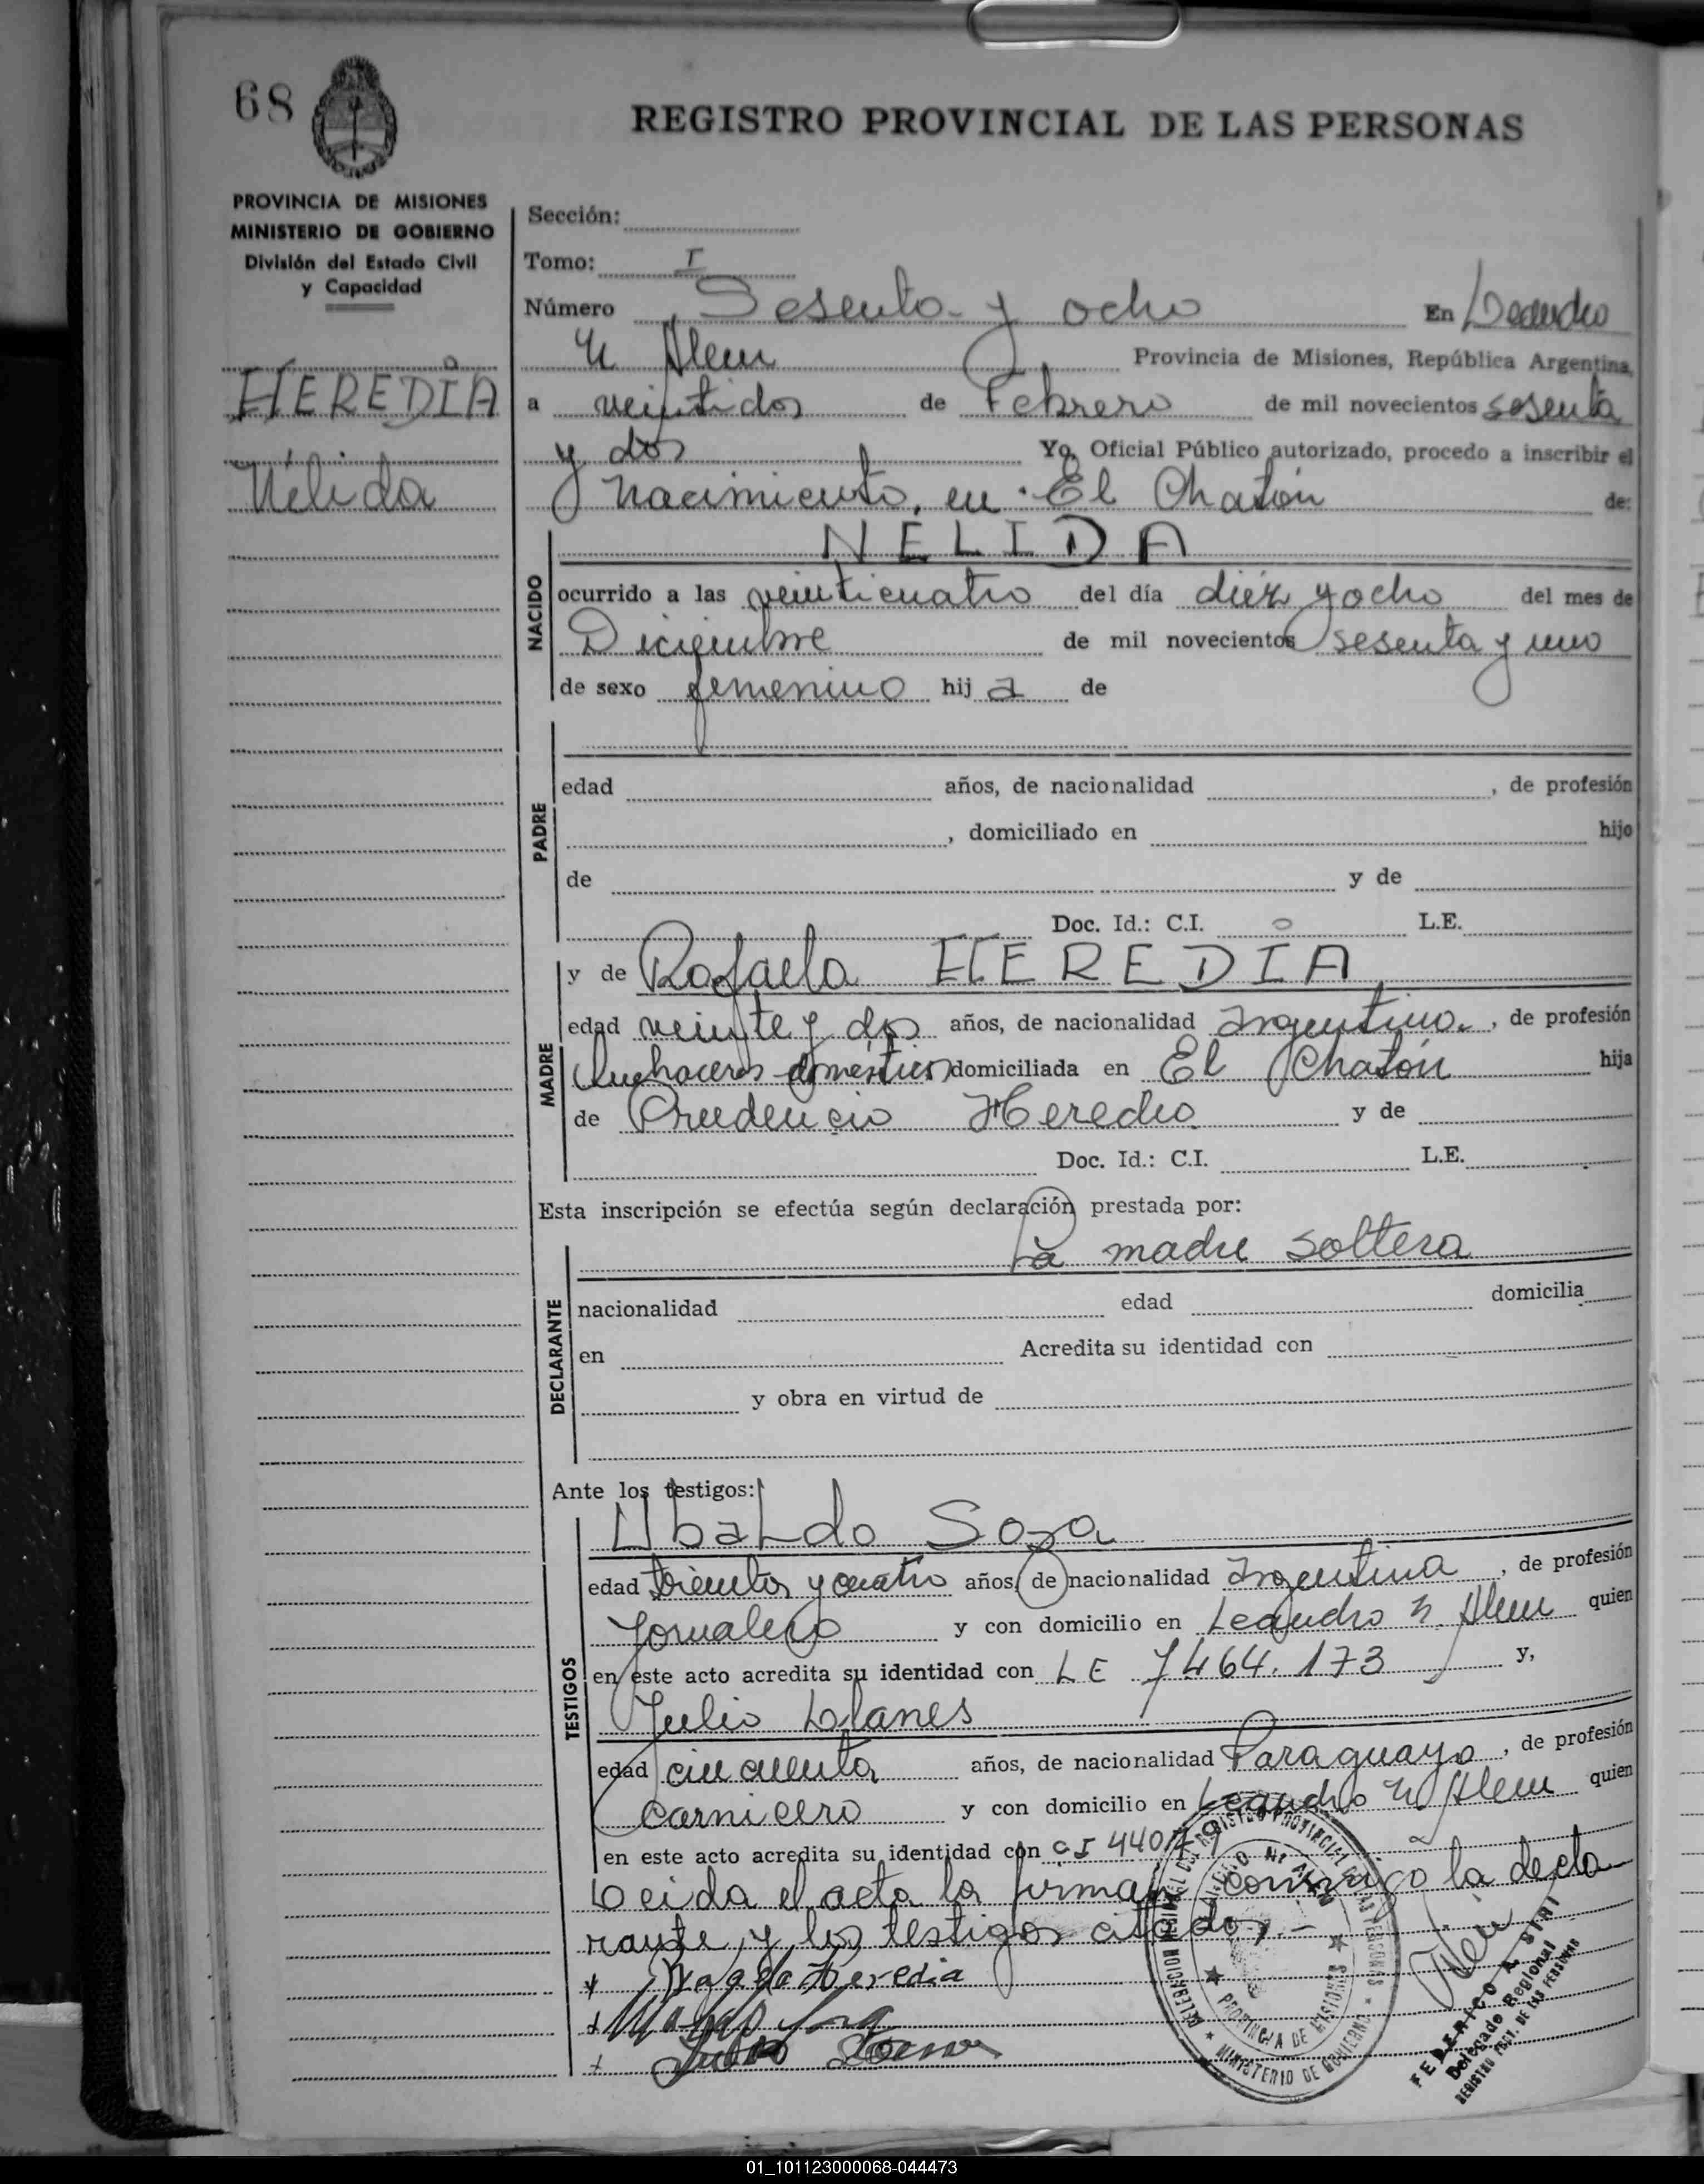 68
REGISTRO PROVINCIAL DE LAS PERSONAS
PROVINCIA DE MISIONES
MINISTERIO DE GOBIERNO
División del Estado Civil
y Capacidad
HEREDIA
Nélida
Sección:
Tomo: I
Número Sesenta y ocho En Leandro
N Alem Provincia de Misiones, República Argentina,
a veintidos de Febrero de mil novecientos sesenta
y dos Yo, Oficial Público autorizado, procedo a inscribir el
Nacimiento, en El Chatón de:
NACIDO
NELIDA
ocurrido a las veinticuatro del día diez y ocho del mes de
Diciembre de mil novecientos sesenta y uno
de sexo femenino hij a de
PADRE
edad años, de nacionalidad , de profesión
, domiciliado en hijo
de y de
Doc. Id.: C.I. L.E.
MADRE
y de Rafaela HEREDIA
edad veinte y dos años, de nacionalidad Argentina. , de profesión
Quehaceres domésticos domiciliada en El Chatón hija
de Prudencio Heredia y de
Doc. Id.: C.I. L.E.
Esta inscripción se efectúa según declaración prestada por:
DECLARANTE
La madre soltera
nacionalidad edad domicilia
en Acredita su identidad con
y obra en virtud de
Ante los testigos:
TESTIGOS
Ubaldo Sosa
edad treinta y cuatro años, de nacionalidad Argentina , de profesión
Jornalero y con domicilio en Leandro N. Alem quien
en este acto acredita su identidad con LE 7464.173 y,
Julio Llanes
edad cincuenta años, de nacionalidad Paraguaya , de profesión
Carnicero y con domicilio en Leandro N Alem quien
en este acto acredita su identidad con CI
Leida el acta la firman conmigo la decla
rante, y los testigos citados.-
Heredia
DELEGACION REGIONAL DEL REGISTRO PROVINCIAL DE LAS PERSONAS
PROVINCIA DE MISIONES
MINISTERIO DE GOBIERNO
FEDERICO A.
Delegado Regional
REGISTRO PROV. DE LAS PERSONAS
01_101123000068-044473